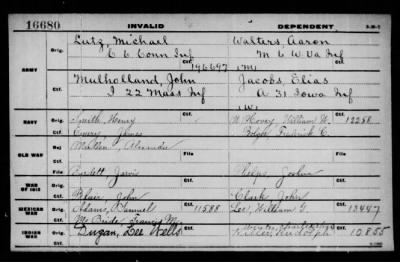 16680 INVALID DEPENDENT
ARMY
Orig. Lutz, Michael Walters, Aaron
E 6 Conn Inf M 6 W Va Inf
Ctf. 196697 (M)
Orig. Mulholland, John Jacobs, Elias
I 22 Mass Inf A 31 Iowa Inf
Ctf. (W)
NAVY
Orig. Smith, Henry William H. 12258
Ctf. Emery, James Fredrick C.
OLD WAR
Rej. Alexander
File File
Bartlett Jarvis Phelps, Joshua
WAR OF 1812
Orig.
Ctf. Blair, John Clark John
MEXICAN WAR
Orig. Adams, Samuel 11588 Lee, William G. 13447
Ctf. McBride, Francis M.
INDIAN WAR
Orig. Duzan, Lee Wells Rudolph 10855
Ctf.